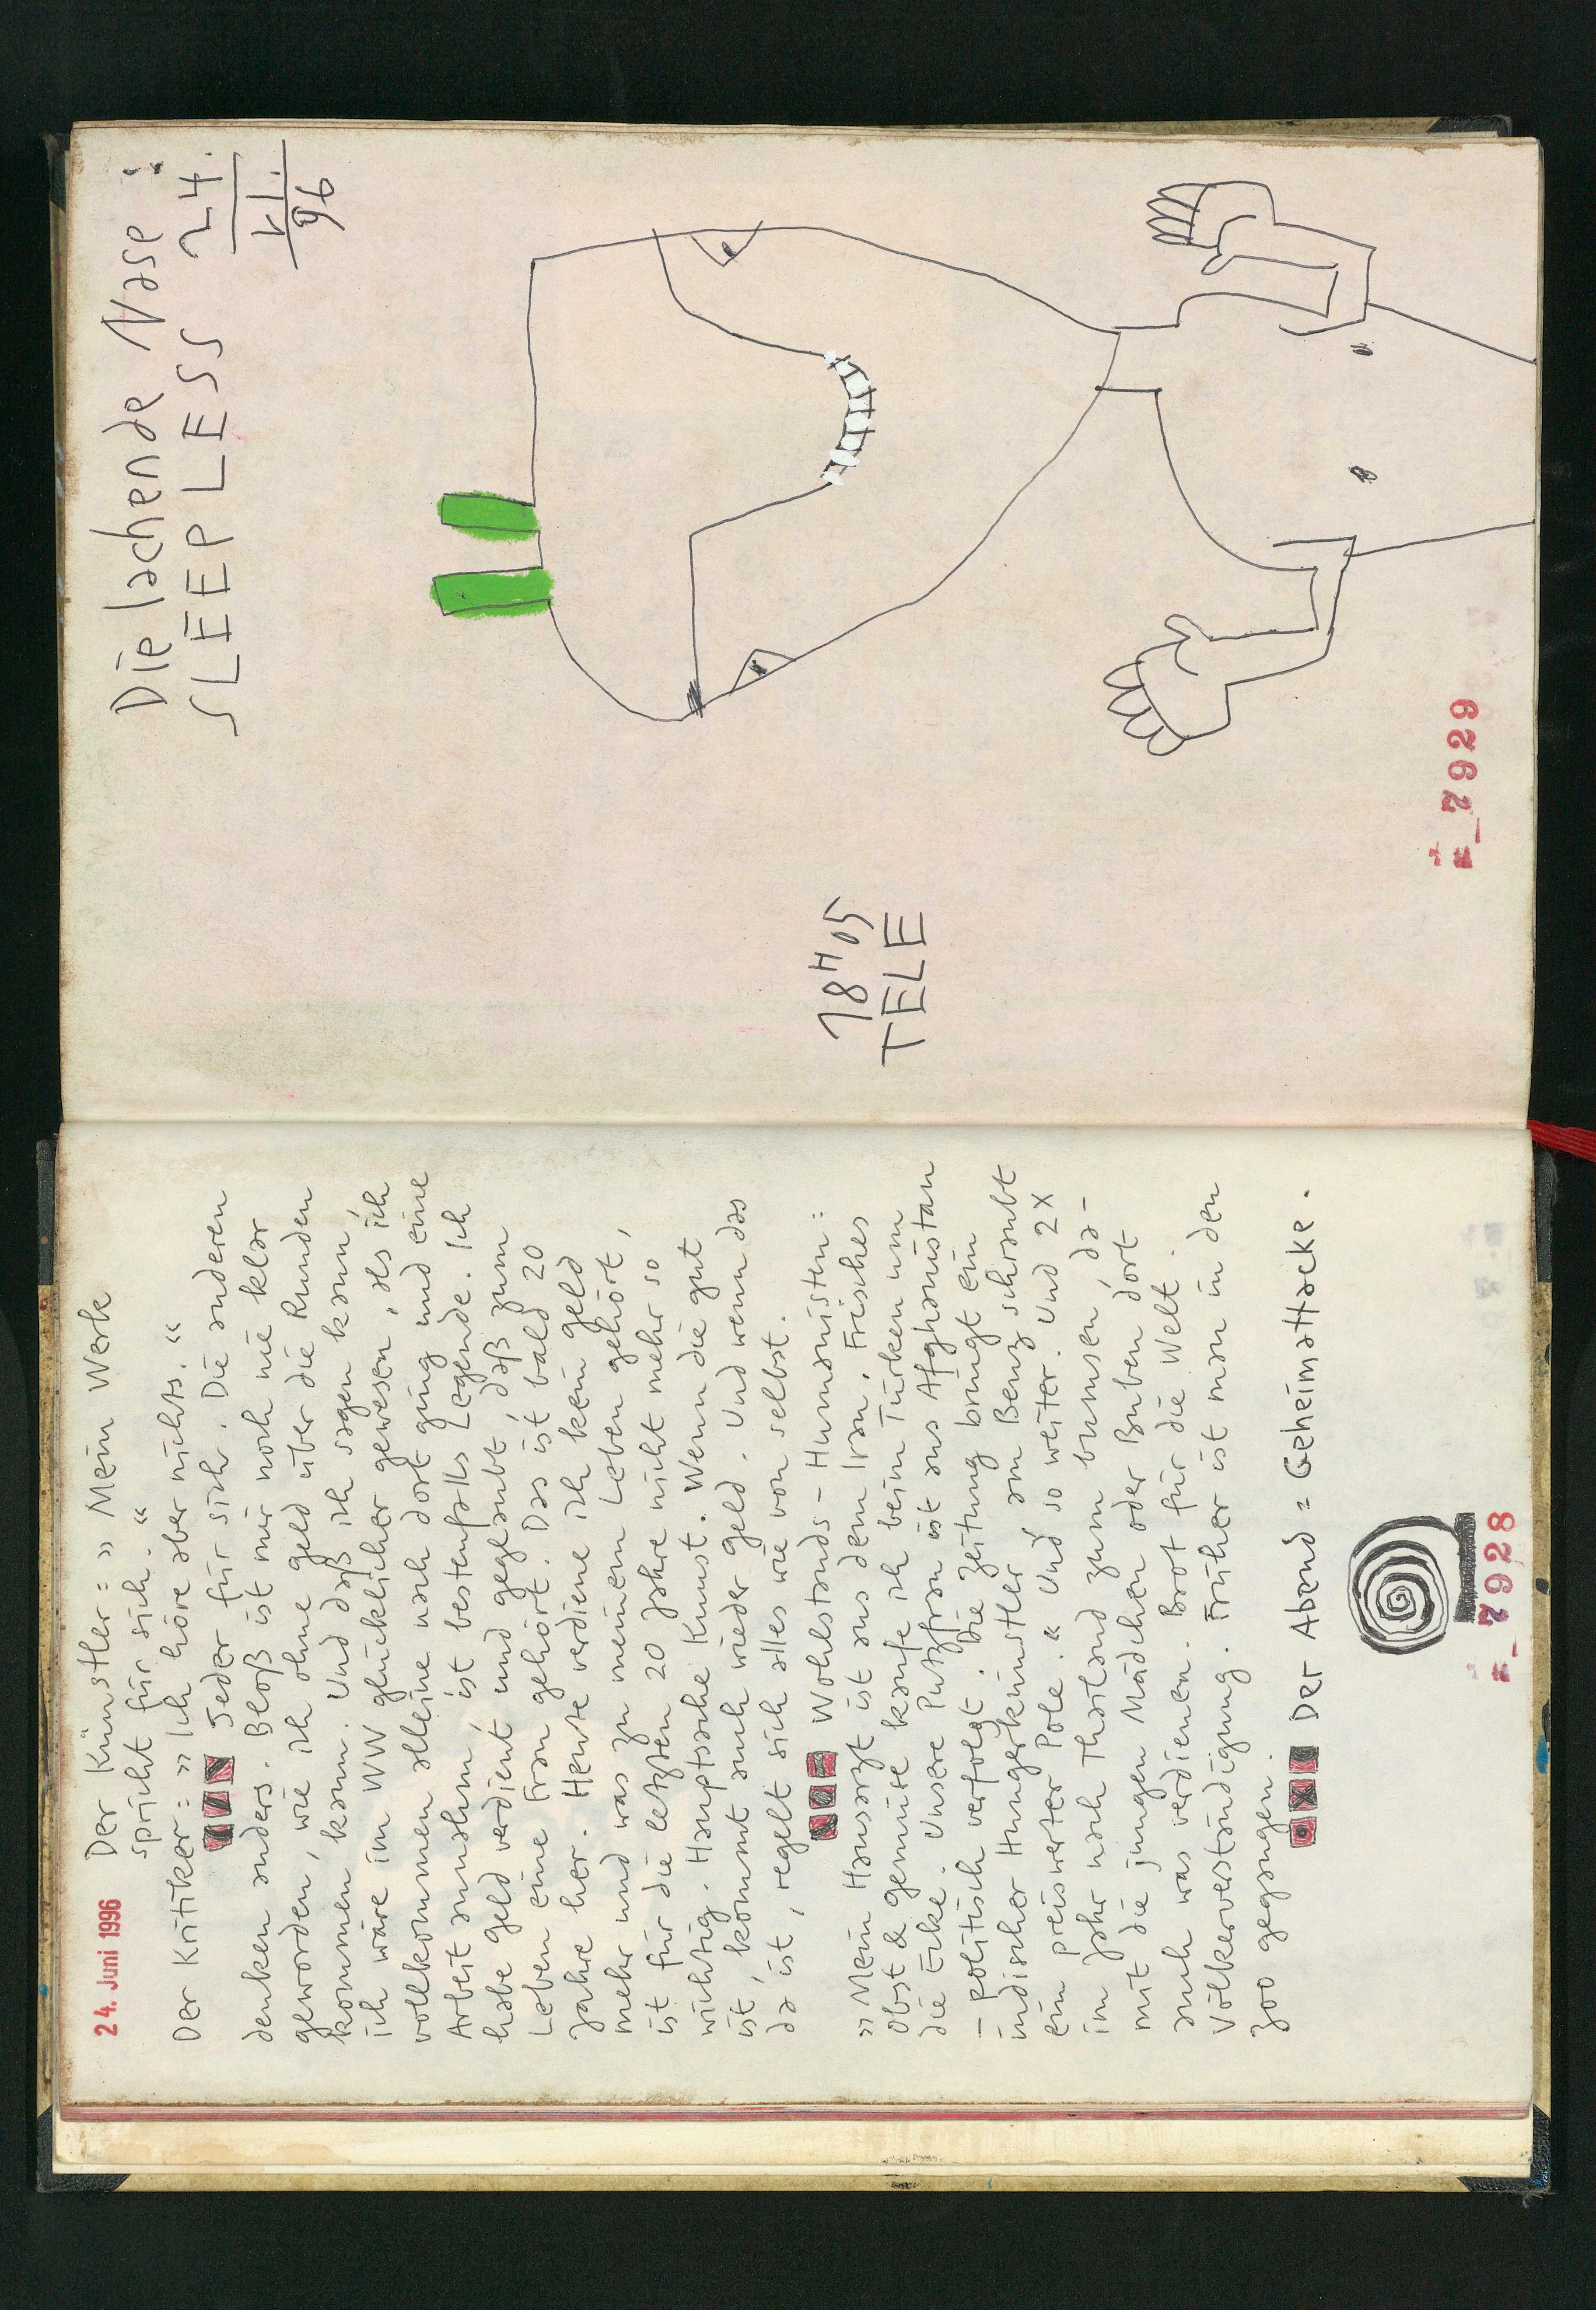 24. Juni 1996
Der Künstler = » Mein Werk
spricht für sich. “
Der Kritiker = » Ich höre aber nichts. “
Jeder für sich. Die anderen
denken anders. Bloß ist mir noch nie klar
geworden, wie ich ohne Geld über die Runden
kommen kann. Und daß ich sagen kann,
ich wäre im WW glücklicher gewesen, als ich
vollkommen alleine nach dort ging und eine
Arbeit annahm, ist bestenfalls Legende. Ich
habe Geld verdient und geglaubt, daß zum
Leben eine Frau gehört. Das ist bald 20
Jahre her. Heute verdiene ich kein Geld
mehr und was zu meinem Leben gehört,
ist für die letzten 20 Jahre nicht mehr so
wichtig. Hauptsache Kunst. Wenn die gut
ist, kommt auch wieder Geld. Und wenn das
da ist, regelt sich alles wie von selbst.
Wohlstands-Humanisten:
» Mein Hausarzt ist aus dem Iran. Frisches
Obst & Gemüse kaufe ich beim Türken um
die Ecke. Unsere Putzfrau ist aus Afghanistan
– politisch verfolgt. Die Zeitung bringt ein
indischer Hungerkünstler am Benz schraubt
ein preiswerter Pole. “ Und so weiter. Und 2x
im Jahr nach Thailand zum bumsen, da-
mit die jungen Mädchen oder Buben dort
auch was verdienen. Brot für die Welt.
Völkerverständigung. Früher ist man in den
Zoo gegangen.
Der Abend = Geheimattacke.
7928
Die lachende Vase:
SLEEPLESS 24.
VI.
96
18H05
TELE
7929